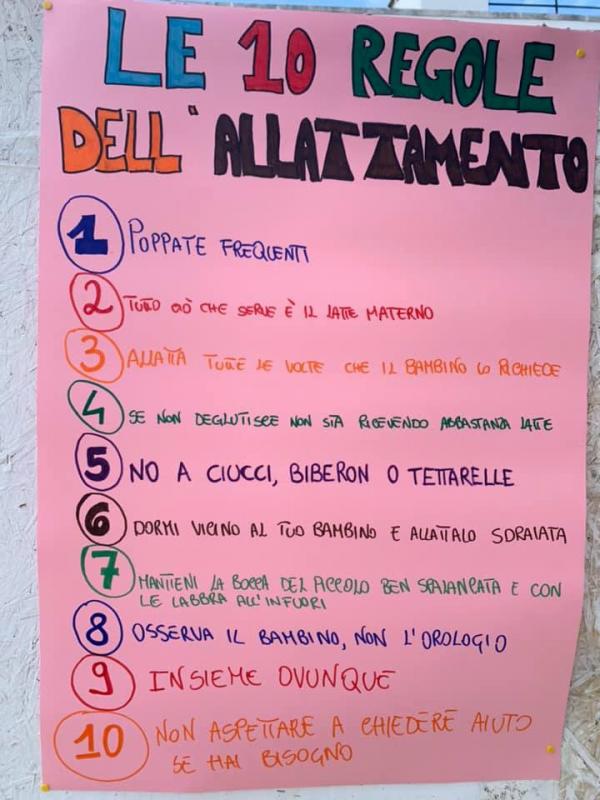 LE 10 REGOLE
DELL'ALLATTAMENTO
1 POPPATE FREQUENTI
2 TUTTO CIÒ CHE SERVE È IL LATTE MATERNO
3 ALLATTA TUTTE LE VOLTE CHE IL BAMBINO LO RICHIEDE
4 SE NON DEGLUTISCE NON STA RICEVENDO ABBASTANZA LATTE
5 NO A CIUCCI, BIBERON O TETTARELLE
6 DORMI VICINO AL TUO BAMBINO E ALLATTALO SDRAIATA
7 MANTIENI LA BOCCA DEL PICCOLO BEN SPALANCATA E CON
LE LABBRA ALL'INFUORI
8 OSSERVA IL BAMBINO, NON L'OROLOGIO
9 INSIEME OVUNQUE
10 NON ASPETTARE A CHIEDERE AIUTO
SE HAI BISOGNO